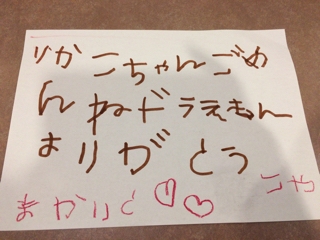 りかこちゃんごめ
んねドラえもん
ありがとう
まかりと
こや